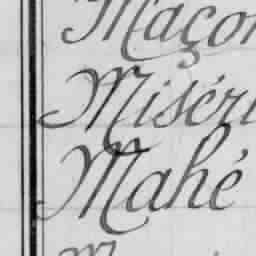 Maçon
Miséri
Mahé